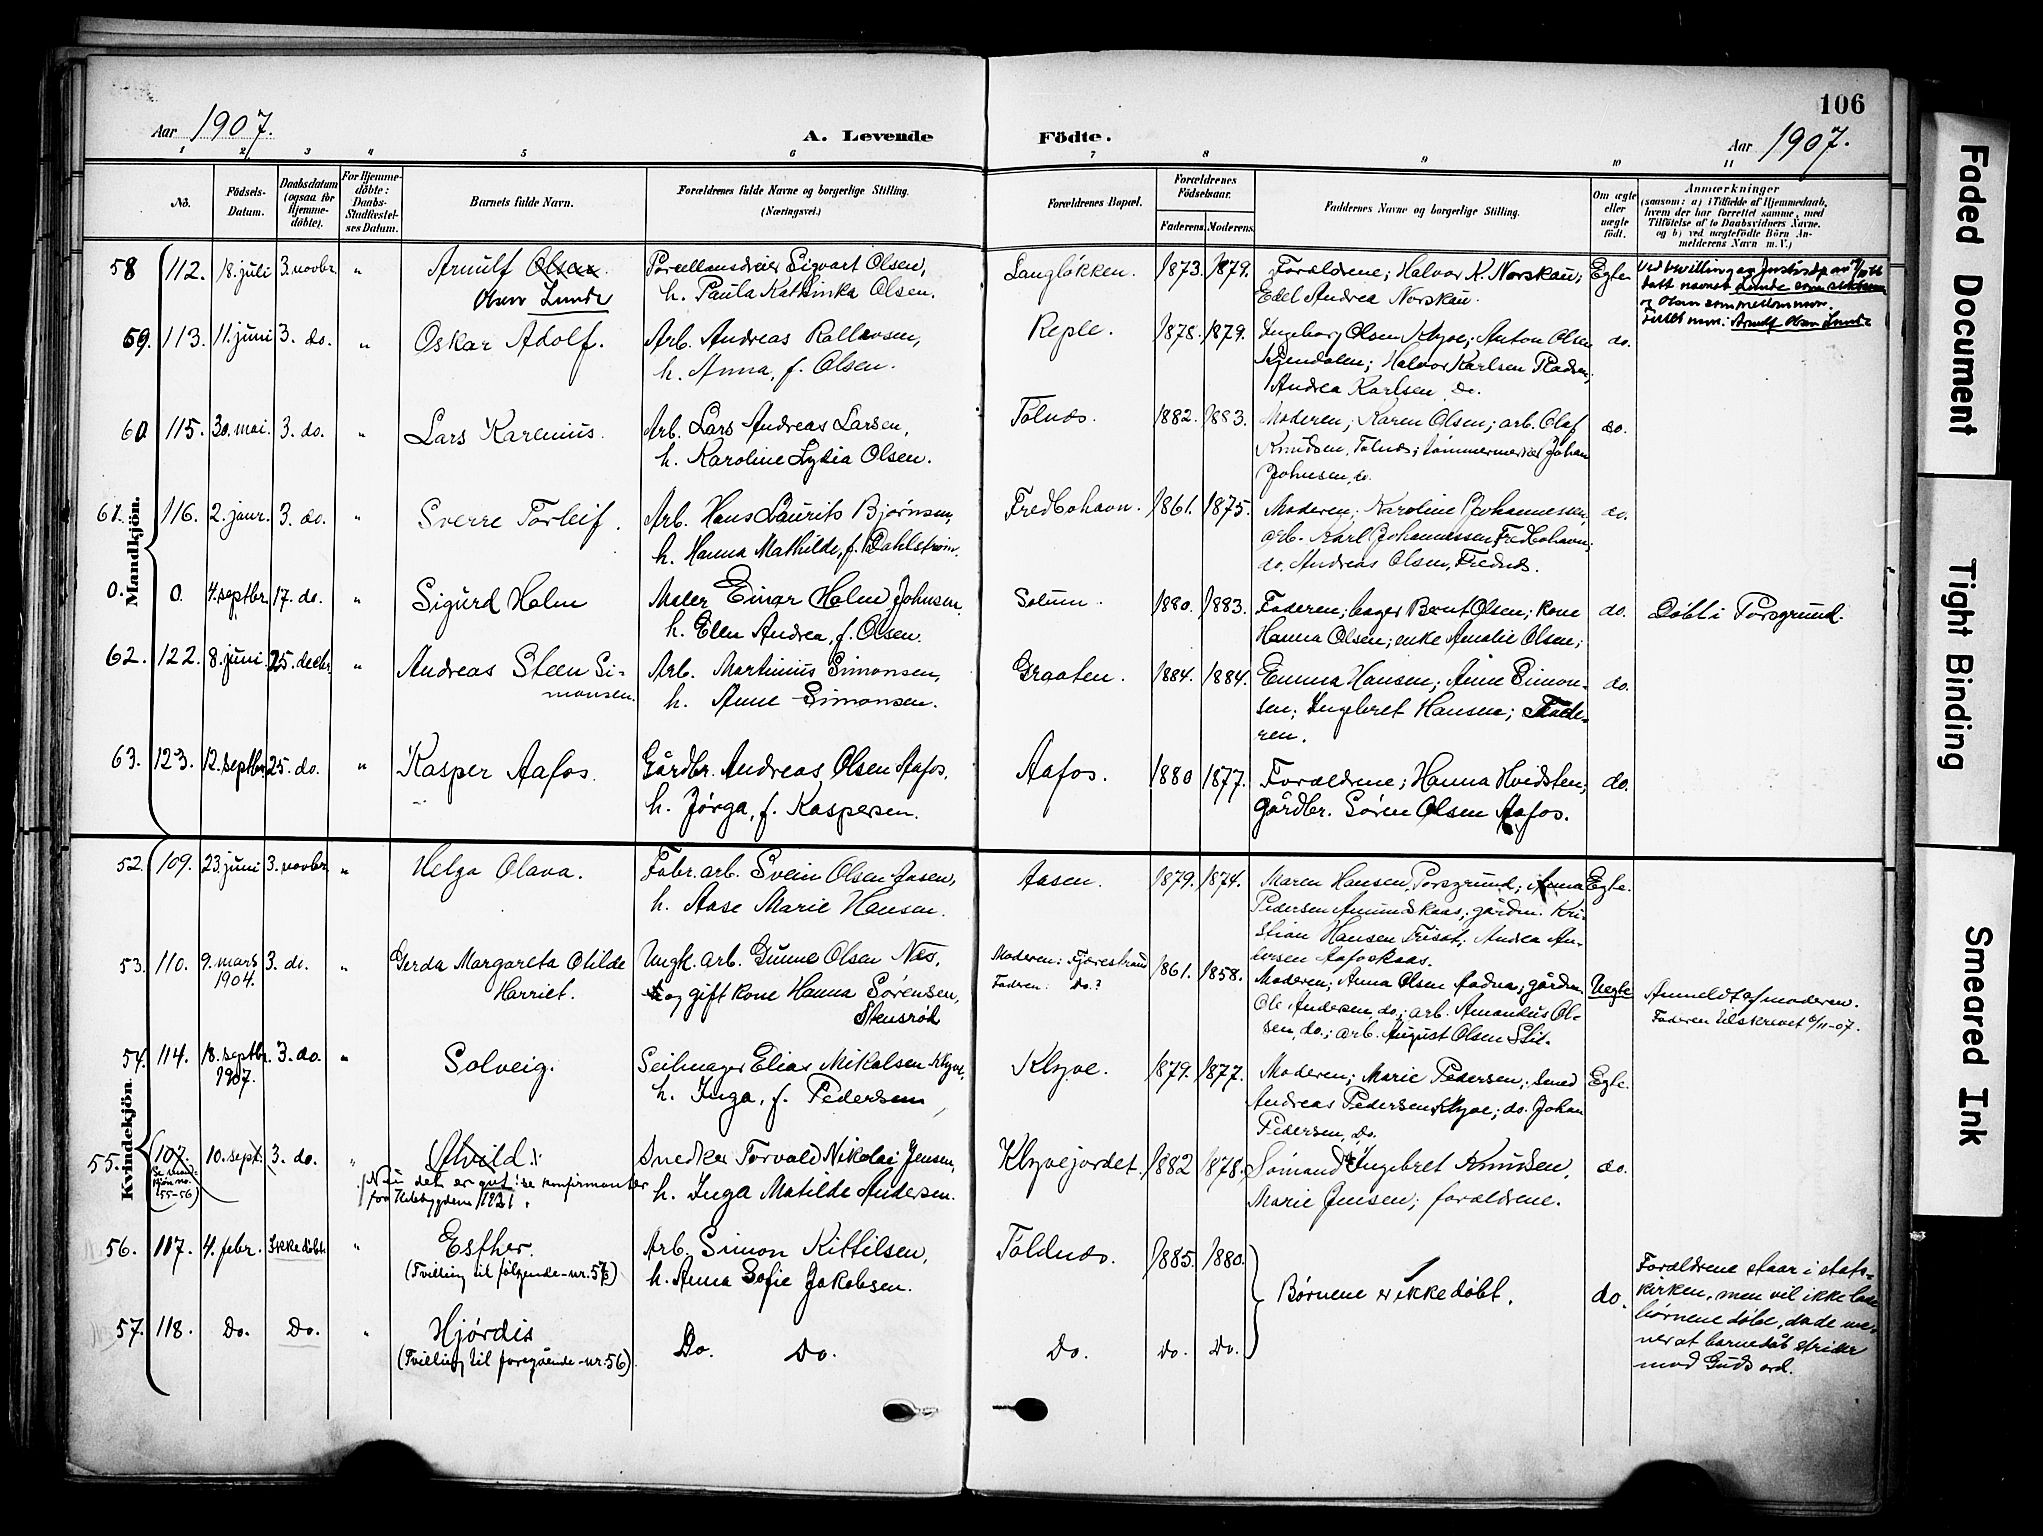 106
Aar 1907.
A. Levende
Födte.
Aar 1907.
1 2 3 4 5 6 7 8 9 10 11
No.
Födsels-
Datum.
Daabsdatum
(ogsaa for
Hjemme-
döbte).
For Hjemme-
döbte:
Daabs-
Stadfæstel-
ses Datum.
Barnets fulde Navn.
Forældrenes fulde Navne og borgerlige Stilling.
(Næringsvei.)
Forældrenes Bopæl.
Forældrenes
Födselsaar.
Faderens. Moderens.
Faddernes Navne og borgerlige Stilling.
Om ægte
eller
uægte
født.
Anmærkninger
(saasom: a) i Tilfælde af Hjemmedaab,
hvem der har forrettet samme, med
Tilföielse af to Daabsvidners Navne.
og b) ved uægtefödte Börn An-
melderens Navn m. V.)
Mandkjön.
58 112. 18. juli 3. novbr. " Arnulf Olsen.
Olsen Lunde
Porcellænsdreier Sigvart Olsen,
h. Paula Kathinka Olsen.
Langløkken. 1873. 1879.
Forældrene; Halvor K. Norskau;
Edel Andrea Norskau.
Egte
tatt navnet Lunde som
og Olsen som mellomnavn.
Arnulf Olsen Lunde
59. 113. 11. juni 3. do. " Oskar Adolf.
Arb. Andreas Rollavsen,
h. Anna, f. Olsen.
Reple. 1878. 1879.
Ingeborg Olsen Klyve; Anton Olsen
; Halvor Karlsen
Andrea Karlsen, do.
do.
60 115. 30. mai. 3. do. " Lars Karenius.
Arb. Lars Andreas Larsen,
h. Karoline Lydia Olsen.
Tolnæs. 1882. 1883.
Moderen; Karen Olsen; arb. Olaf
Knudsen, Tolnæs; tømmermester Johan
Johnsen, do.
do.
61. 116. 2. janr. 3. do. " Sverre Torleif.
Arb. Hans Laurits Bjørnsen,
h. Hanna Mathilde, f. Dahlstrøm.
Fredbohavn. 1861. 1875.
Moderen; Karoline Johannessen,
arb. Karl Johannessen Fredbohavn;
do. Andreas Olsen, Frednæs.
do.
0. 0. 4. septbr. 17. do. " Sigurd Holm
Maler Einar Holm Johnsen,
h. Ellen Andrea, f. Olsen.
Solum. 1880. 1883.
Faderen; bager Bernt Olsen; kone
Hanna Olsen; enke Amalie Olsen;
do. Døbt i Porsgrund.
62. 122. 8. juni. 25. decbr. " Andreas Steen Si-
monsen.
Arb. Martinius Simonsen,
h. Anne Simonsen.
Graaten. 1884. 1884.
Emma Hansen; Anne Simon-
sen; Ingebret Hansen; Fade-
ren.
do.
63. 123. 12. septbr. 25. do. " Kasper Aafos.
Gårdbr. Andreas Olsen Aafos,
h. Jørga, f. Kaspersen.
Aafos. 1880 1877.
Forældrene; Hanna Hvidsten;
gårdbr. Søren Olsen Aafos.
do.
Kvindekjön.
52. 109. 23. juni 3. novbr. " Helga Olava.
Fabr. arb. Svein Olsen Aasen,
h. Aase Marie Hansen.
Aasen. 1879. 1874.
Maren Hansen, Porsgrund; Anna
Pedersen Amundskaas; gårdm. Kri-
stian Hansen Frisøt; Andrea An-
dersen Aafoskaas.
Egte.
53. 110. 9. mars
1904.
3. do. " Gerda Margareta Otilde
Harriet.
Ungk. arb. Gunne Olsen Næs,
og gift kone Hanna Sørensen,
Stensrød
Moderen: Fjærestrand
Faderen: Do.?
1861. 1858.
Moderen; Anna Olsen ; gårdm.
Ole Andersen, do.; arb. Amandus Ol-
sen, do.; arb. August Olsen
Uegte
Anmeldt af moderen.
Faderen tilskrevet 6/11-07.
54. 114. 18. septbr.
1907.
3. do. " Solveig.
Seilmager Elias Mikalsen Klyve,
h. Inga, f. Pedersen
Klyve. 1879. 1877.
Moderen; Marie Pedersen; smed
Andreas Pedersen Klyve; do. Johan
Pedersen, do.
Egte.
55. 107. 10. sept. 3. do. " Alvild.
(Se mand-
kjøn no.
55-56)
det er gut! se konfirmanter
fra Hedebygden 1921.
Snedker Torvald Nikolai Jensen,
h. Inga Matilde Andersen.
Klyvejordet. 1882 1878.
Sømand Ingebret Knudsen,
Marie Jensen; forældrene.
do.
56. 117. 4. febr. Ikke døbt. " Esther.
(Tvilling til følgende-nr. 57)
Arb. Simon Kittilsen,
h. Anna Sofie Jakobsen.
Toldnæs. 1885. 1880.
Børnene er ikke døbt.
do.
Forældrene staar i stats-
kirken, men vil ikke lade
børnene døbe, da de me-
ner at barnedåb strider
mod Guds ord.
57. 118. Do. Do. " Hjørdis
(Tvilling til foregående-nr. 56)
Do. Do.
Do. Do. Do.
Faded Document
Tight Binding
Smeared Ink